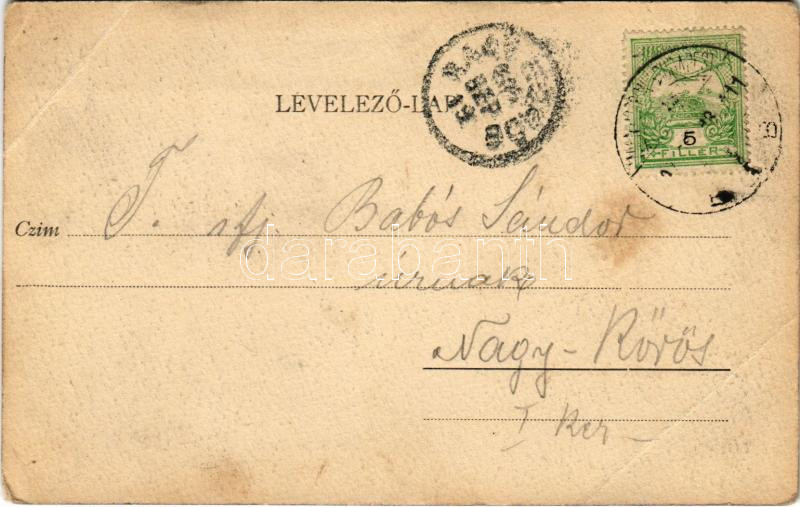 LEVELEZŐ-LAP
5
FILLER
Czim T. ifj. Babós Sándor
úrnak
darabanth
Nagy-Kőrös
I Ker